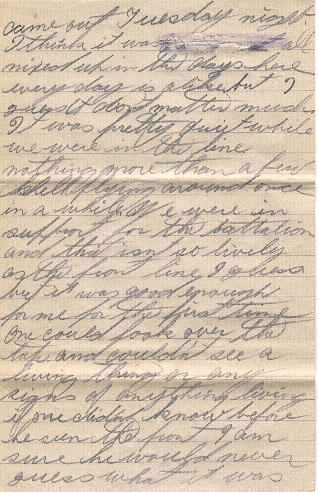 came out Tuesday night
I think it was all
mixed up in the days here
every day is alike but I
guess it dont matter much
It was pretty quiet while
we were in the line
nothing more than a few
shells flying around once
in a while. We were in
support for the battalion
and that isn't so lively
as the front line I guess
but it was good enough
for me for the first time
one could look over the
top and couldn't see a
living thing or any
signs of anything living
if one didn't know before
he seen the front I am
sure he would never
guess what it was